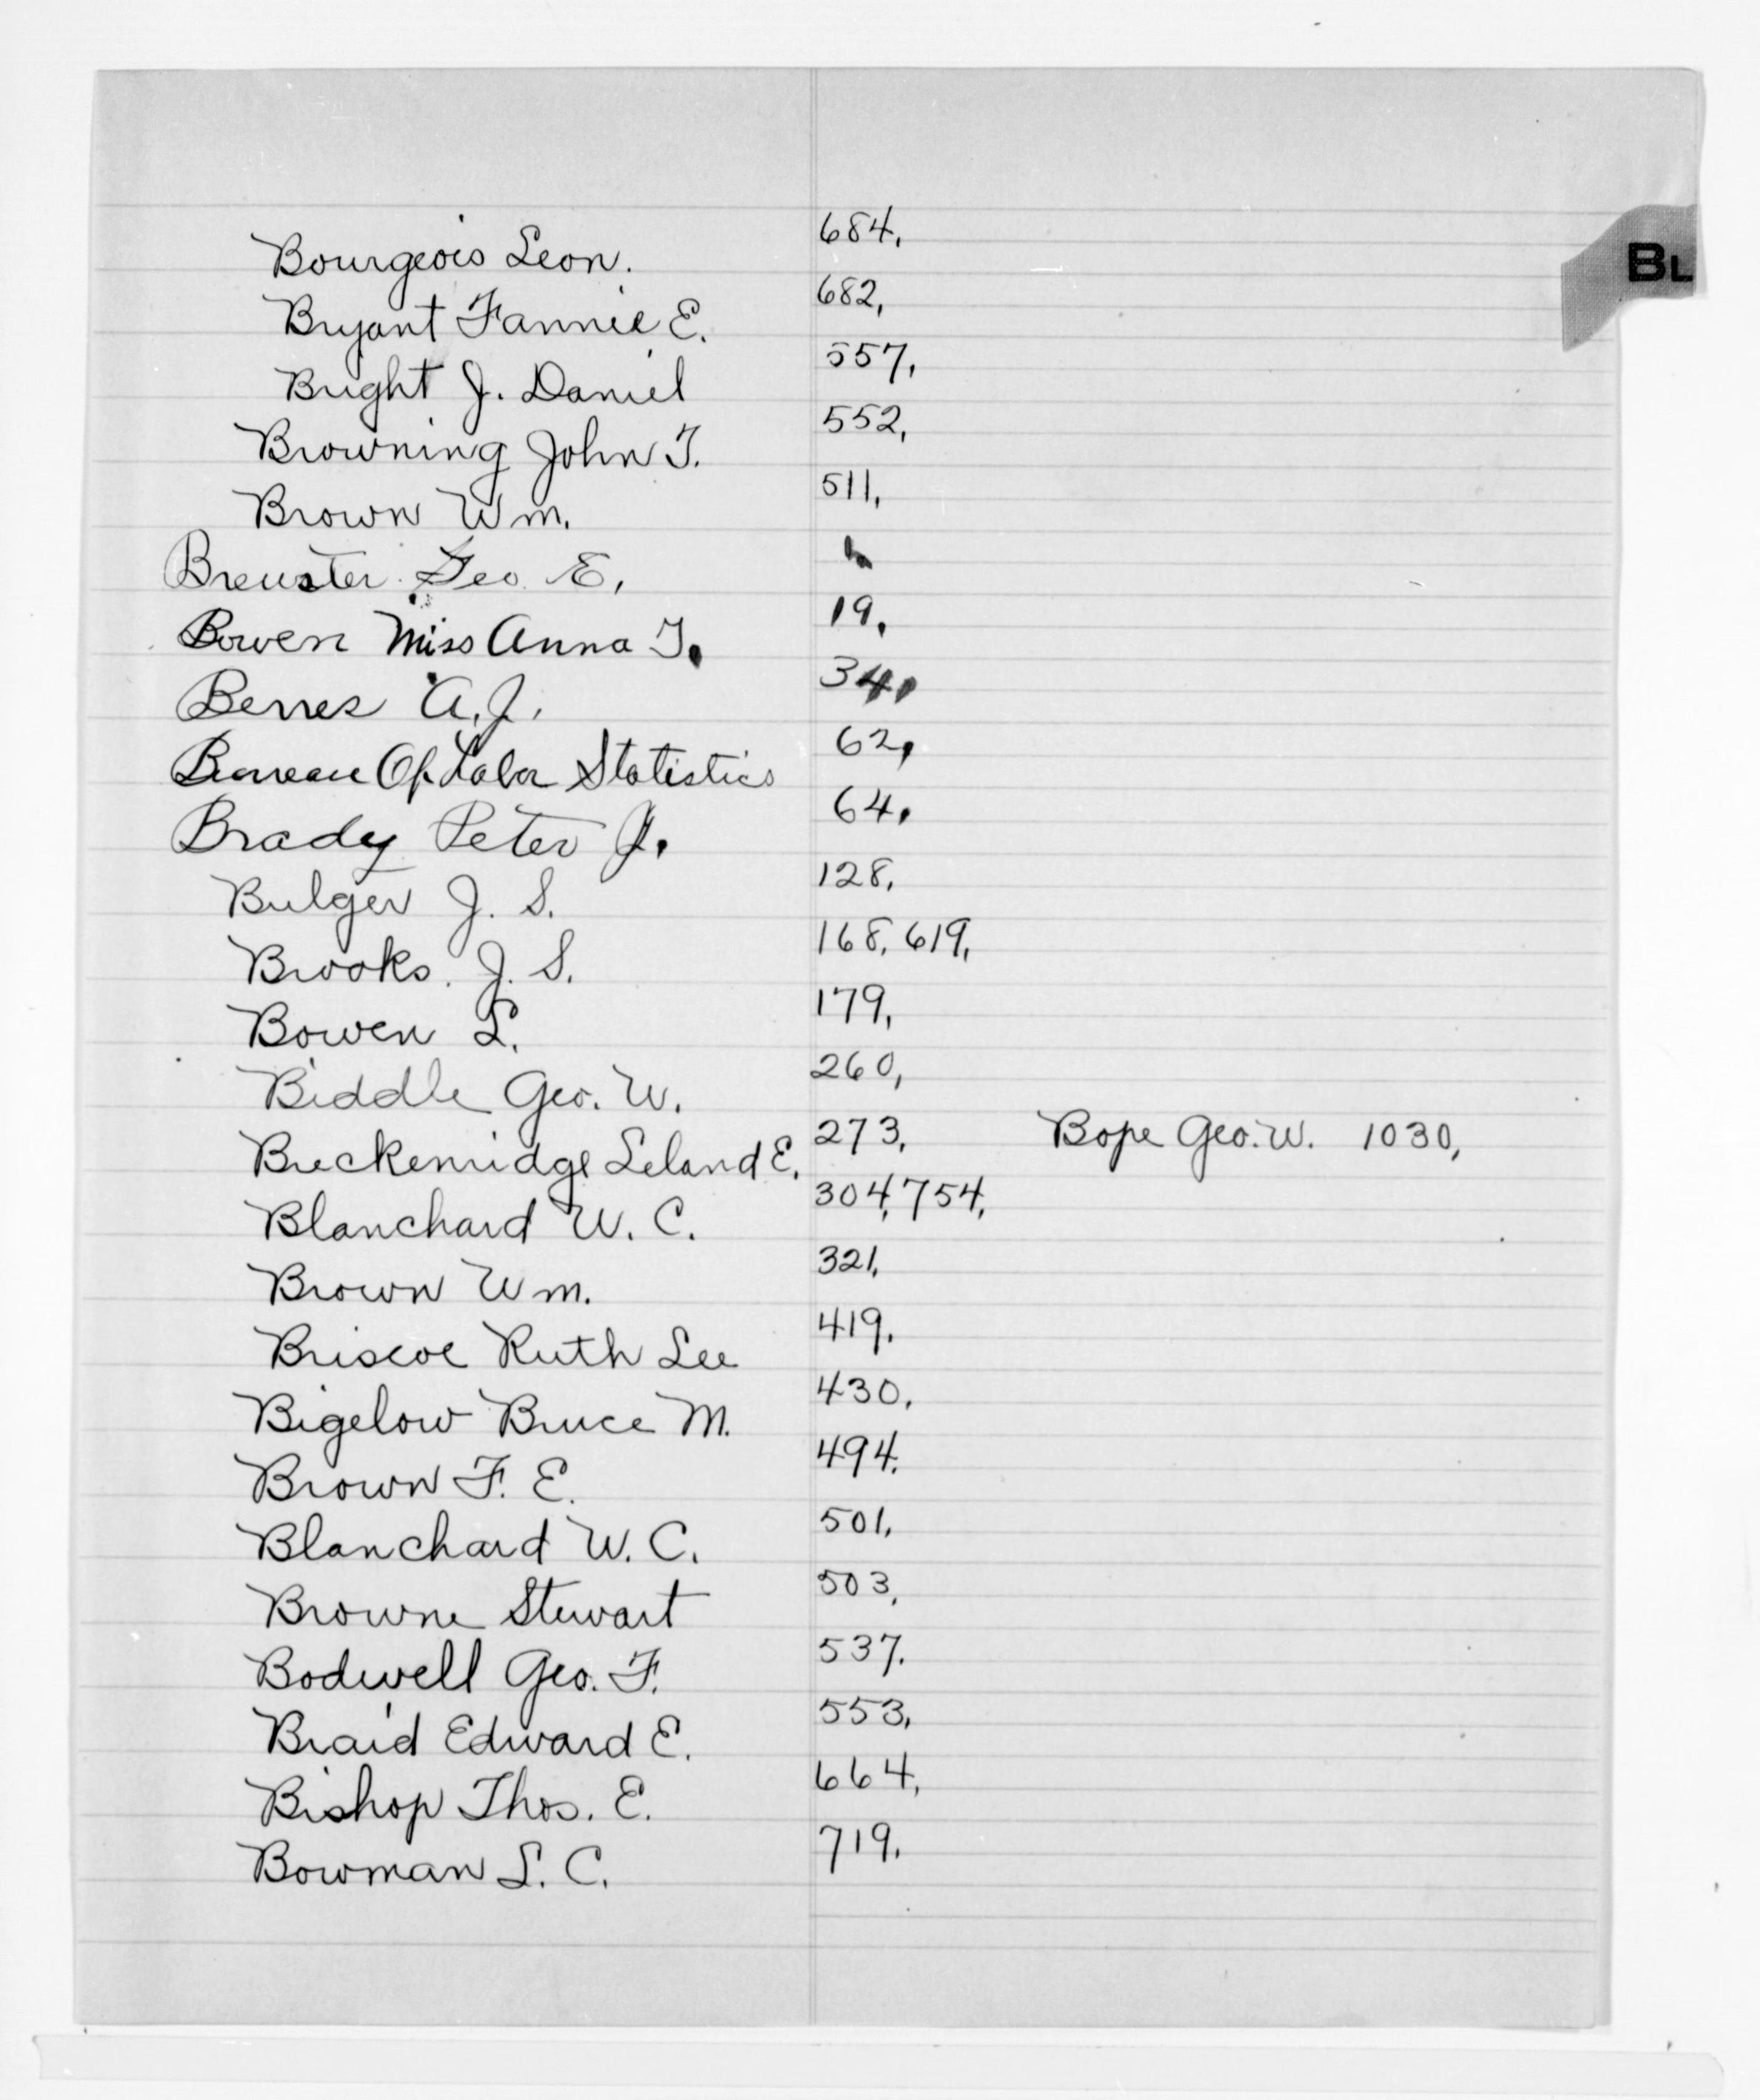 BL
Bourgeois Leon. 684,
Bryant Fannie E. 682,
Bright J. Daniel 557,
Browning John T. 552,
Brown Wm. 511,
Brewster Geo E,
Bowen Miss Anna T. 19,
Berres A. J. 34,
Bureau Of Labor Statistics 62,
Brady Peter J. 64,
Bulger J. S. 128,
Brooks. J. S. 168, 619,
Bowen L. 179,
Biddle Geo. W. 260,
Breckenridge Leland E. 273, Bope Geo. W. 1030,
Blanchard W. C. 304, 754,
Brown Wm. 321,
Briscoe Ruth Lee 419,
Bigelow Bruce M. 430,
Brown F. E. 494.
Blanchard W. C. 501,
Browne Stewart 503,
Bodwell Geo. F. 537.
Braid Edward E. 553,
Bishop Thos. E. 664,
Bowman L. C. 719,